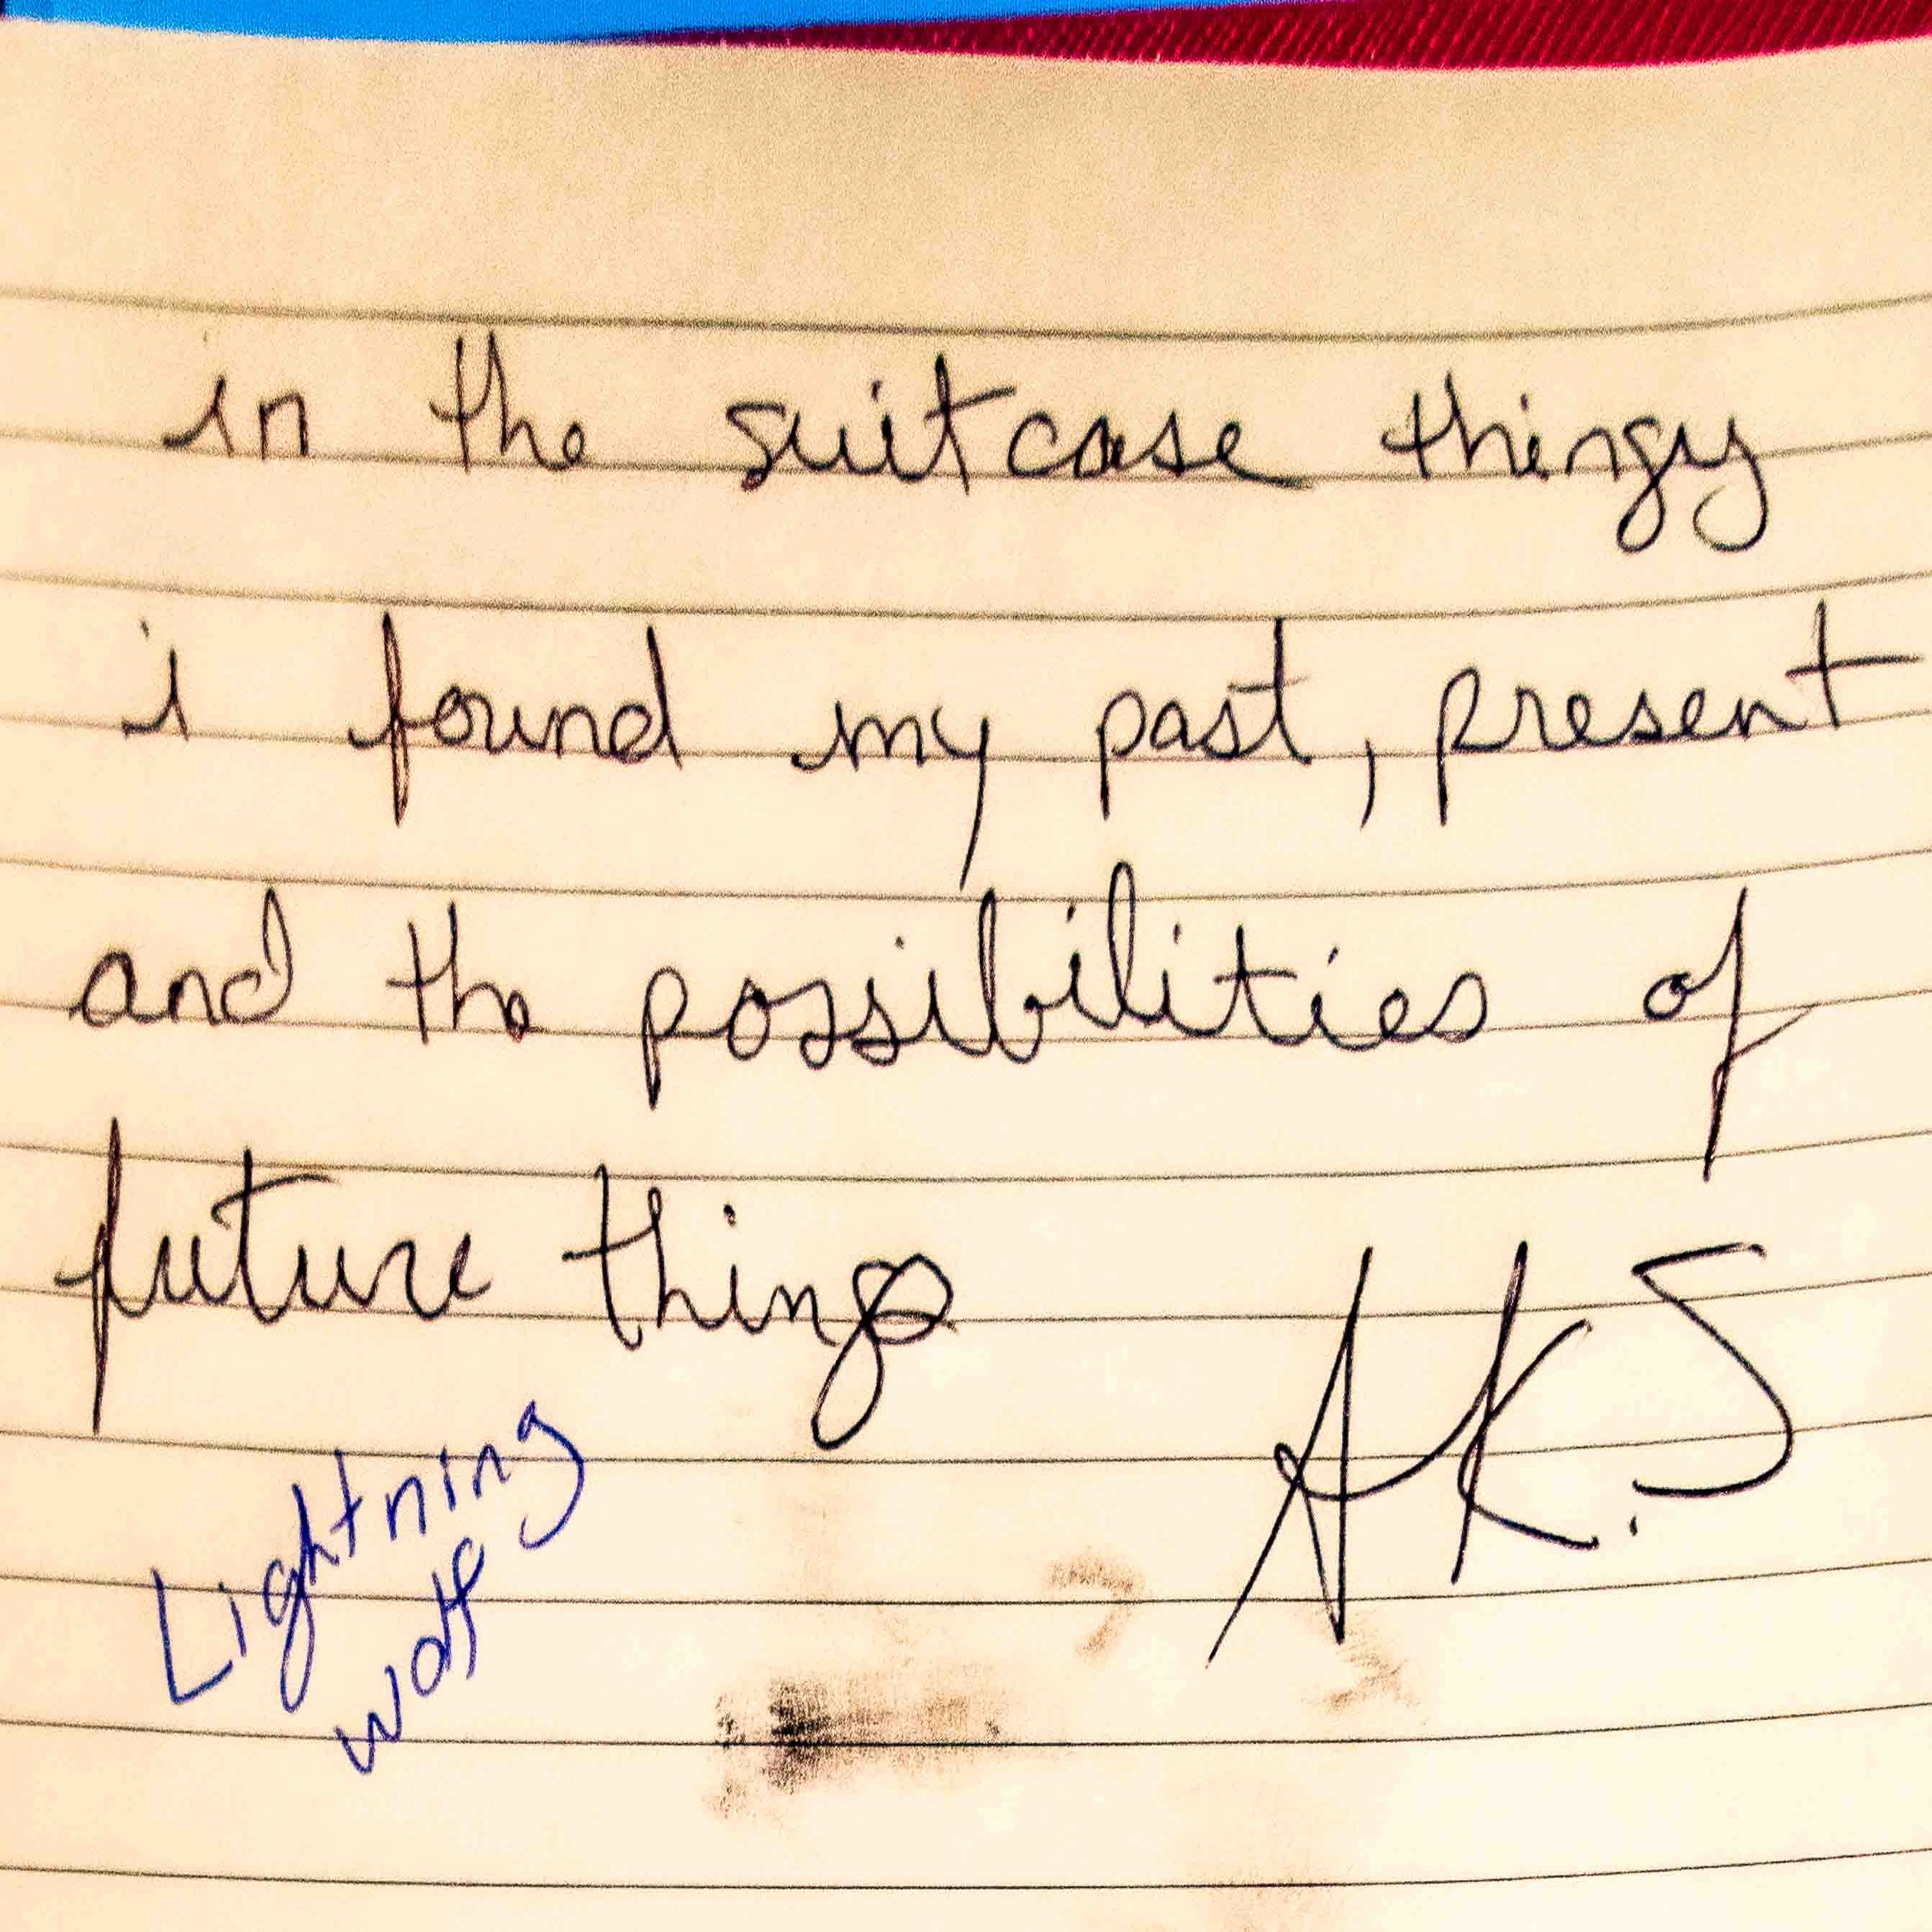 in the suitcase thingy
i found my past, present
and the possibilities of
future things
AK.S
Lightning
wolf